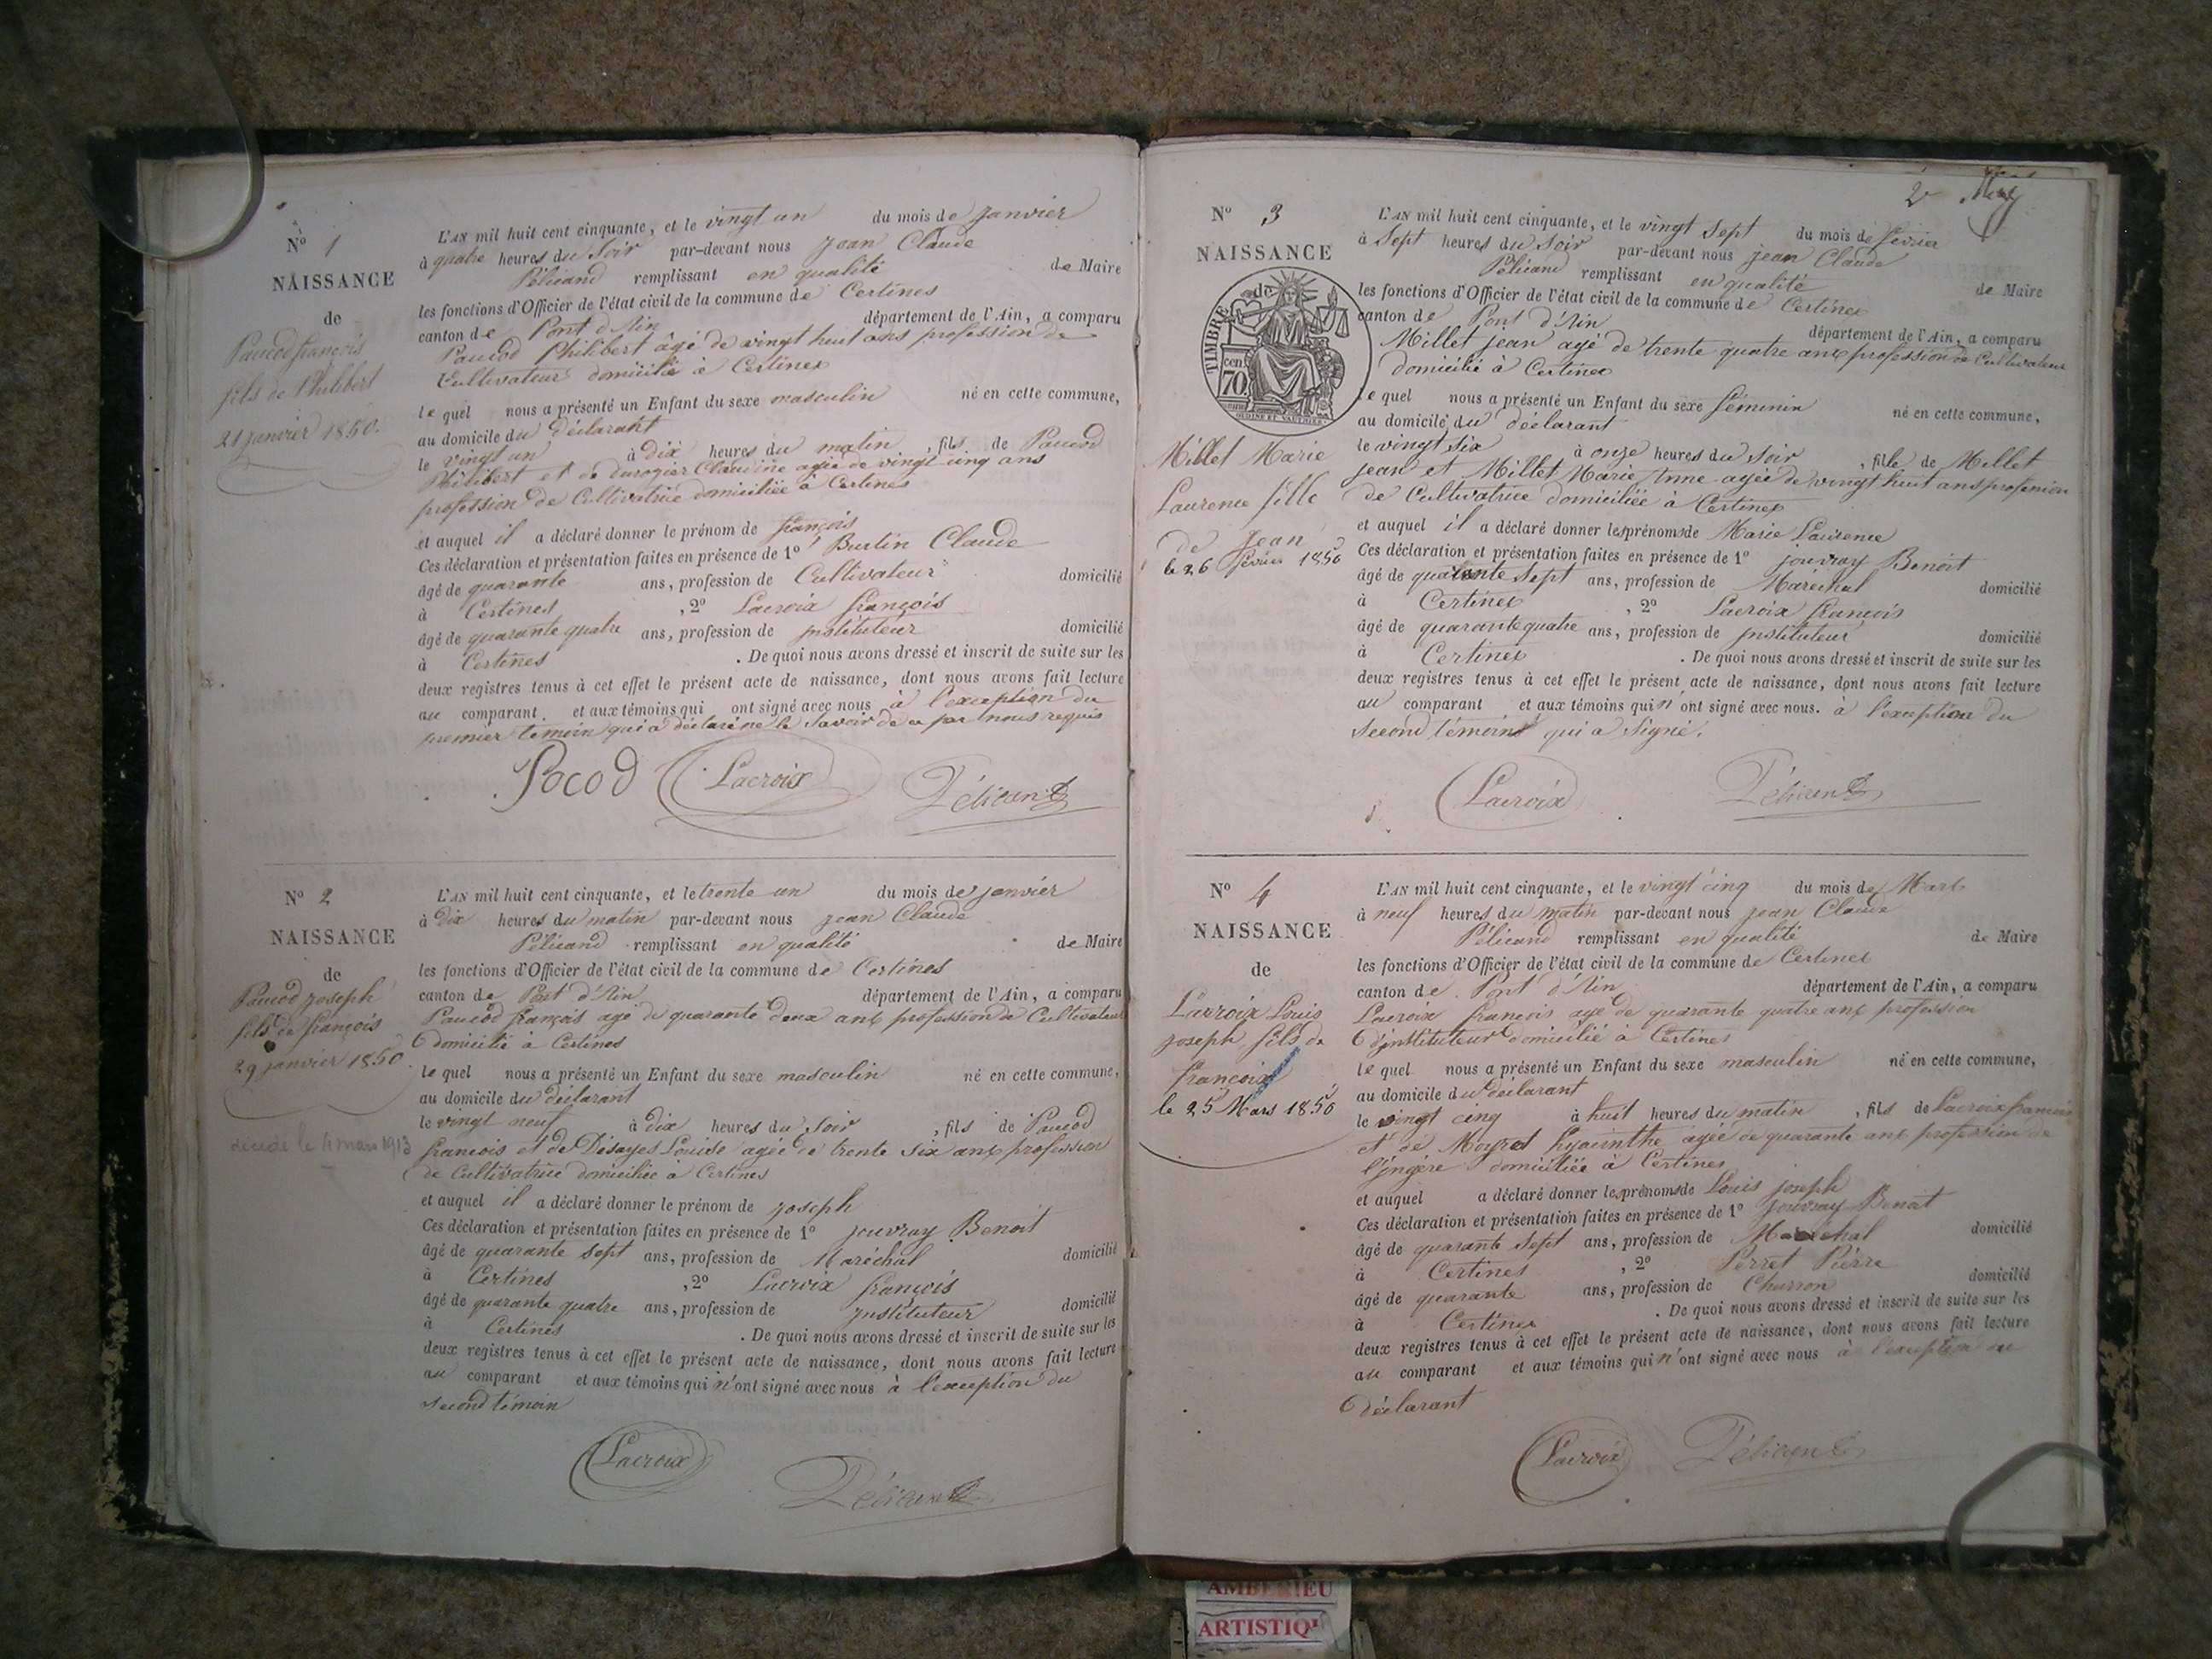 N° 1
NAISSANCE
de
Paucod françois
fils de Philibert
21 janvier 1850.
L'AN mil huit cent cinquante, et le vingt un du mois de janvier
à quatre heures du Soir par-devant nous jean Claude
Pélicand remplissant en qualité de Maire
les fonctions d'Officier de l'état civil de la commune de Certines
canton de Pont d'Ain département de l'Ain, a comparu
Paucod Philibert âgé de vingt huit ans profession de
Cultivateur domicilié à Certines
le quel nous a présenté un Enfant du sexe masculin né en cette commune,
au domicile du déclarant
le vingt un à dix heures du matin, fils de Paucod
Philibert et de durogier Claudine agée de vingt cinq ans
profession de Cultivatrice domiciliée à Certines
et auquel il a déclaré donner le prénom de françois
Ces déclaration et présentation faites en présence de 1° Burtin Claude
âgé de quarante ans, profession de Cultivateur domicilié
à Certines, 2° Lacroix françois
âgé de quarante quatre ans, profession de instituteur domicilié
à Certines. De quoi nous avons dressé et inscrit de suite sur les
deux registres tenus à cet effet le présent acte de naissance, dont nous avons fait lecture
au comparant et aux témoins qui ont signé avec nous à l'exception du
premier témoin qui a déclaré ne le Savoir de ce par nous requis
Pocod Lacroix Pélicand
N° 2
NAISSANCE
de
Paucod joseph
fils de françois
29 janvier 1850
décédé le 4 mars 1913
L'AN mil huit cent cinquante, et le trente un du mois de janvier
à dix heures du matin par-devant nous jean Claude
Pélicand remplissant en qualité de Maire
les fonctions d'Officier de l'état civil de la commune de Certines
canton de Pont d'Ain département de l'Ain, a comparu
Paucod françois agé de quarante deux ans profession de Cultivateur
domicilié à Certines
le quel nous a présenté un Enfant du sexe masculin né en cette commune,
au domicile du déclarant
le vingt neuf à dix heures du Soir, fils de Paucod
françois et de Désayes Louise agée de trente Six ans profession
de Cultivatrice domiciliée à Certines
et auquel il a déclaré donner le prénom de joseph
Ces déclaration et présentation faites en présence de 1° jouvray Benoit
âgé de quarante Sept ans, profession de Maréchal domicilié
à Certines, 2° Lacroix françois
âgé de quarante quatre ans, profession de instituteur domicilié
à Certines. De quoi nous avons dressé et inscrit de suite sur les
deux registres tenus à cet effet le présent acte de naissance, dont nous avons fait lecture
au comparant et aux témoins qui n'ont signé avec nous à l'exception du
second témoin
Lacroix Pélicand
2
N° 3
NAISSANCE
de
TIMBRE
70 cen
Millet Marie
Laurence fille
de jean
le 26 février 1850
L'AN mil huit cent cinquante, et le vingt Sept du mois de février
à Sept heures du Soir par-devant nous jean Claude
Pélicand remplissant en qualité de Maire
les fonctions d'Officier de l'état civil de la commune de Certines
canton de Pont d'Ain département de l'Ain, a comparu
Millet jean agé de trente quatre ans profession de Cultivateur
domicilié à Certines
le quel nous a présenté un Enfant du sexe féminin né en cette commune,
au domicile du déclarant
le vingt Six à onze heures du Soir, fille de Millet
jean et Millet Marie Anne agée de vingt huit ans profession
de Cultivatrice domiciliée à Certines
et auquel il a déclaré donner les prénoms de Marie Laurence
Ces déclaration et présentation faites en présence de 1° jouvray Benoit
âgé de quarante Sept ans, profession de Maréchal domicilié
à Certines, 2° Lacroix françois
âgé de quarante quatre ans, profession de instituteur domicilié
à Certines. De quoi nous avons dressé et inscrit de suite sur les
deux registres tenus à cet effet le présent acte de naissance, dont nous avons fait lecture
au comparant et aux témoins qui n'ont signé avec nous. à l'exception du
second témoins qui a Signé.
Lacroix Pélicand
N° 4
NAISSANCE
de
Lacroix Louis
joseph fils de
françois
le 25 Mars 1850
L'AN mil huit cent cinquante, et le vingt cinq du mois de Mars
à neuf heures du matin par-devant nous jean Claude
Pélicand remplissant en qualité de Maire
les fonctions d'Officier de l'état civil de la commune de Certines
canton de Pont d'Ain département de l'Ain, a comparu
Lacroix francois agé de quarante quatre ans profession
d'instituteur domicilié à Certines
le quel nous a présenté un Enfant du sexe masculin né en cette commune,
au domicile du déclarant
le vingt cinq à huit heures du matin, fils de Lacroix francois
et de Moyret hyacinthe agée de quarante ans profession de
lingère domiciliée à Certines
et auquel a déclaré donner les prénoms de Louis joseph
Ces déclaration et présentation faites en présence de 1° jouvray Benoit
âgé de quarante Sept ans, profession de Maréchal domicilié
à Certines, 2° Perret Pierre
âgé de quarante ans, profession de Charron domicilié
à Certines. De quoi nous avons dressé et inscrit de suite sur les
deux registres tenus à cet effet le présent acte de naissance, dont nous avons fait lecture
au comparant et aux témoins qui n'ont signé avec nous à l'exception du
déclarant
Lacroix Pélicand
AMBERIEU
ARTISTIQ